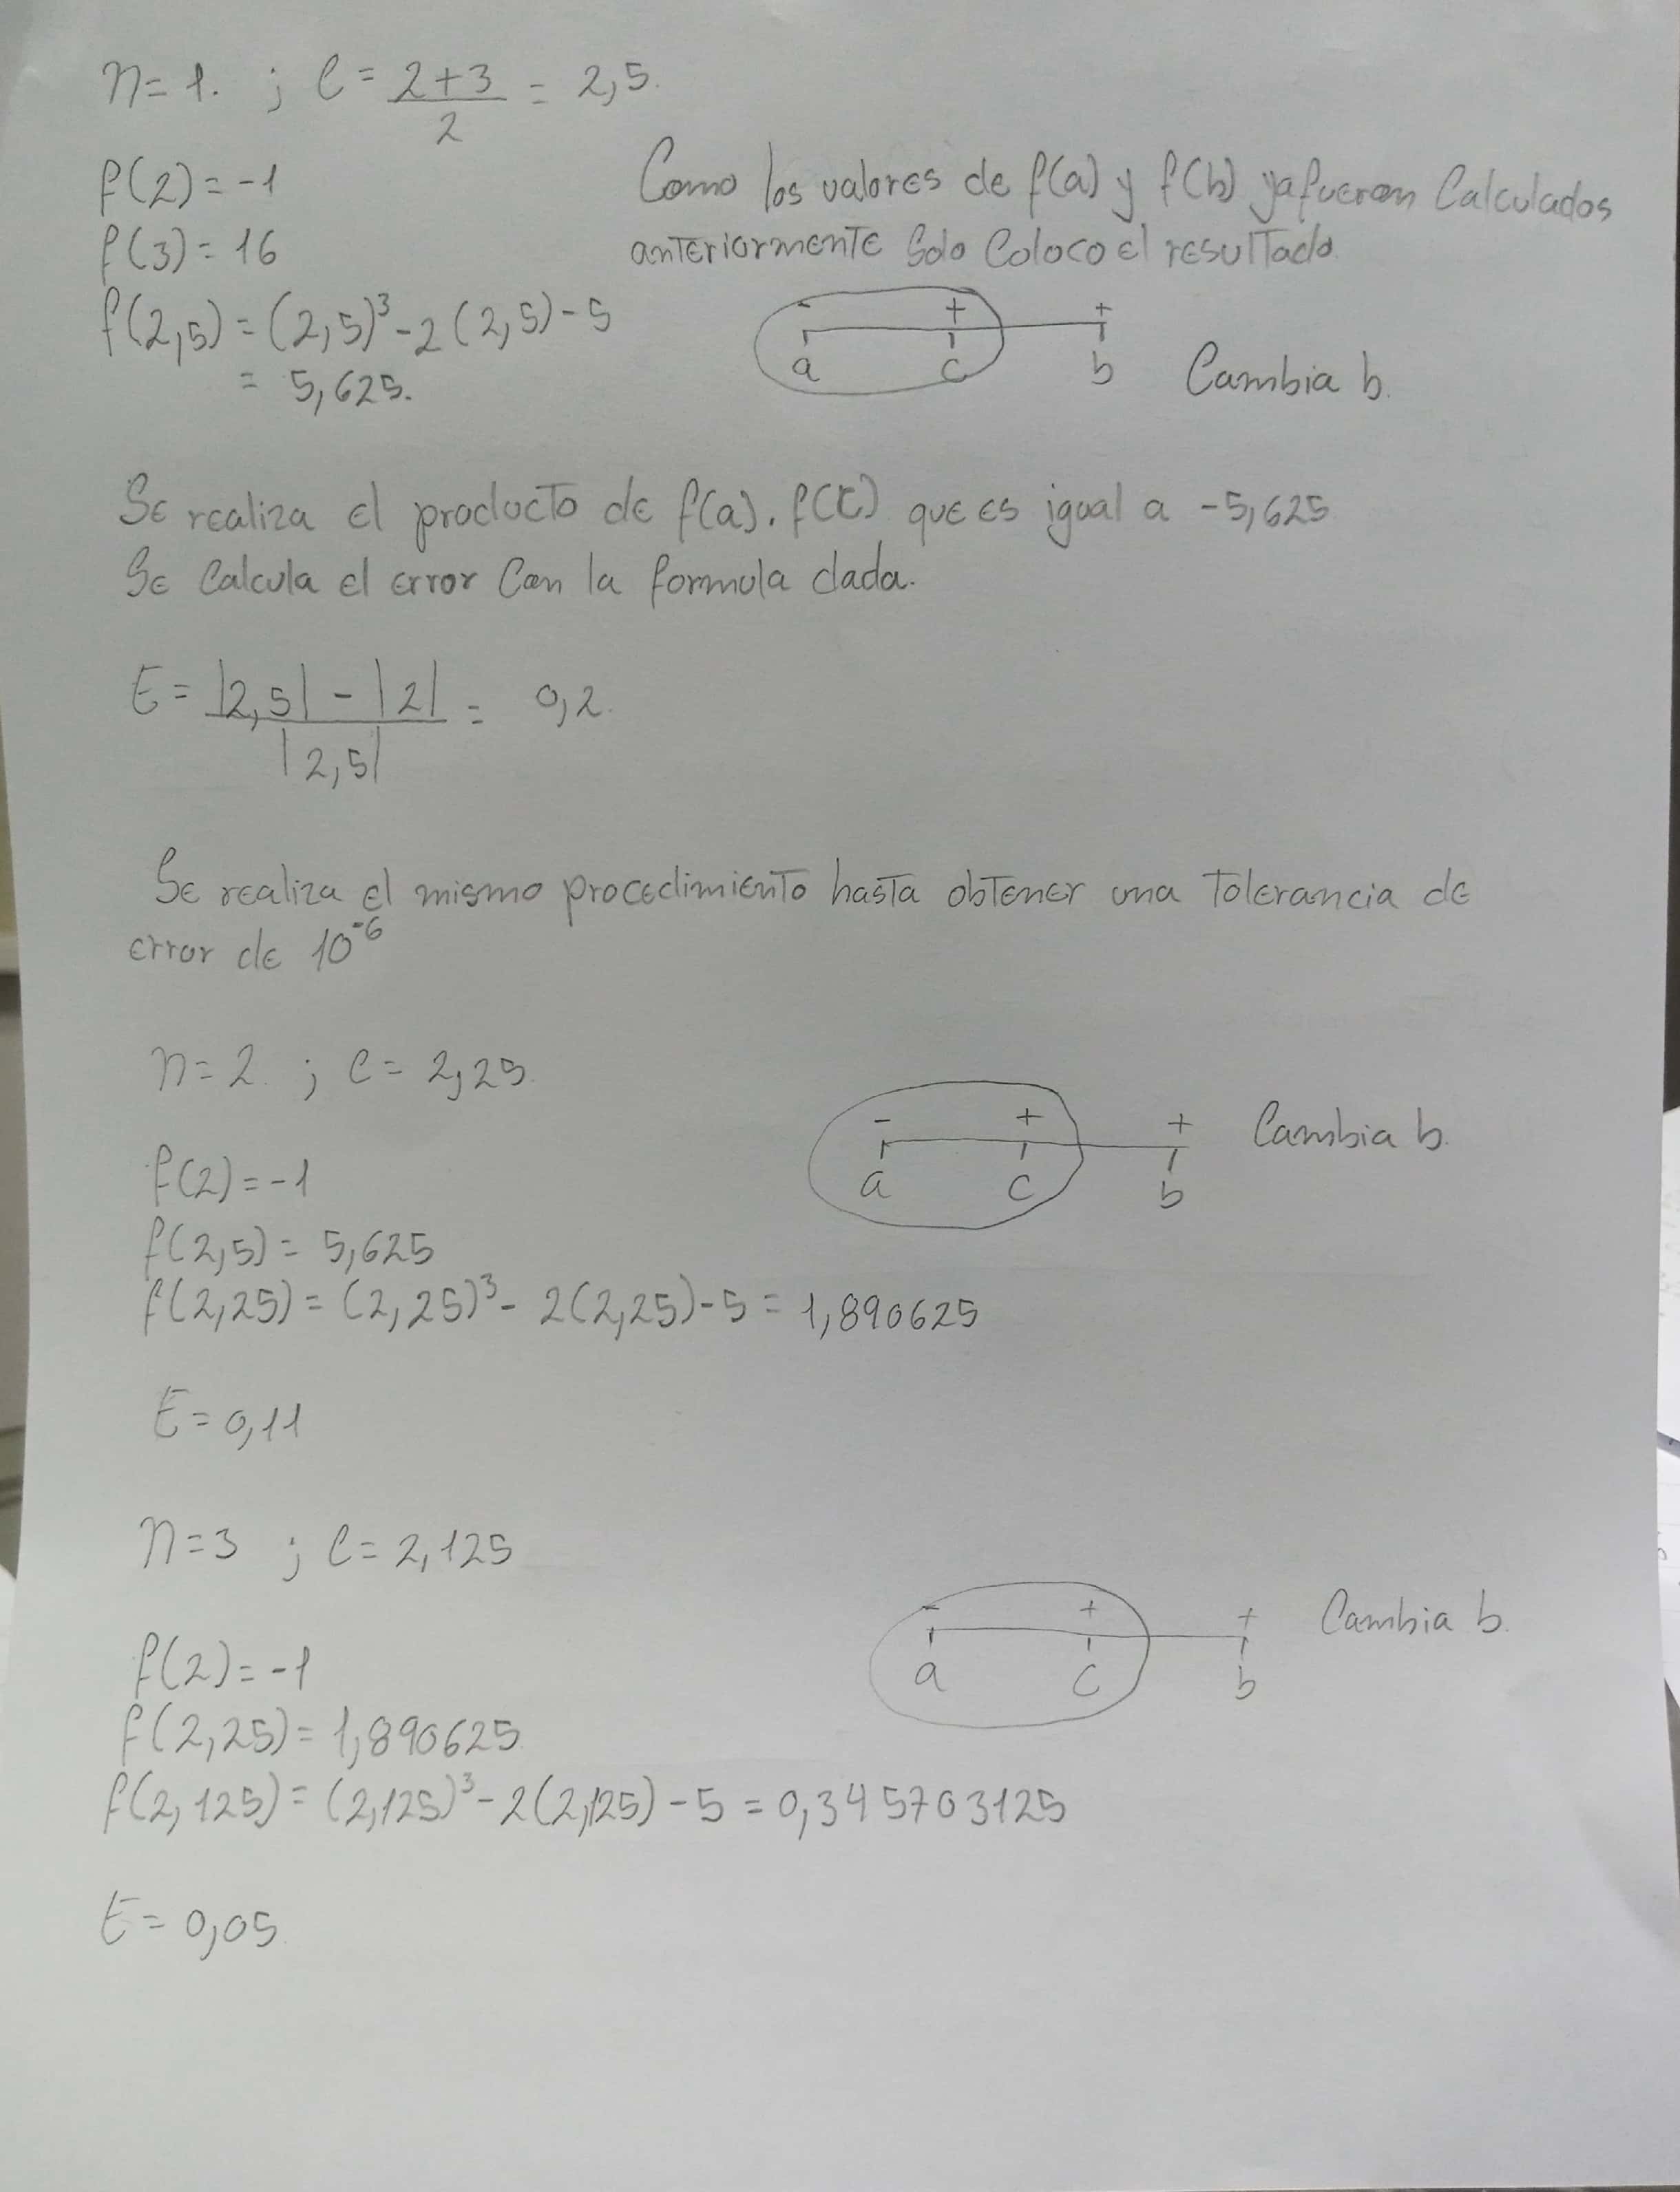 n=1. ; C = (2+3)/2 = 2,5.
f(2) = -1
Como los valores de f(a) y f(b) ya fueron Calculados
f(3) = 16
anteriormente Solo Coloco el resultado.
f(2,5) = (2,5)³ - 2(2,5) - 5
= 5,625.
- + +
a c b
Cambia b.
Se realiza el producto de f(a) . f(c) que es igual a -5,625
Se Calcula el error Con la formula dada.
E = (|2,5| - |2|)/|2,5| = 0,2.
Se realiza el mismo procedimiento hasta obtener una Tolerancia de
error de 10⁻⁶
n=2. ; C= 2,25.
- + +
a c b
Cambia b.
f(2) = -1
f(2,5) = 5,625
f(2,25) = (2,25)³ - 2(2,25) - 5 = 1,890625
E = 0,11
n=3 ; C= 2,125
- + +
a c b
Cambia b.
f(2) = -1
f(2,25) = 1,890625
f(2,125) = (2,125)³ - 2(2,125) - 5 = 0,345703125
E = 0,05